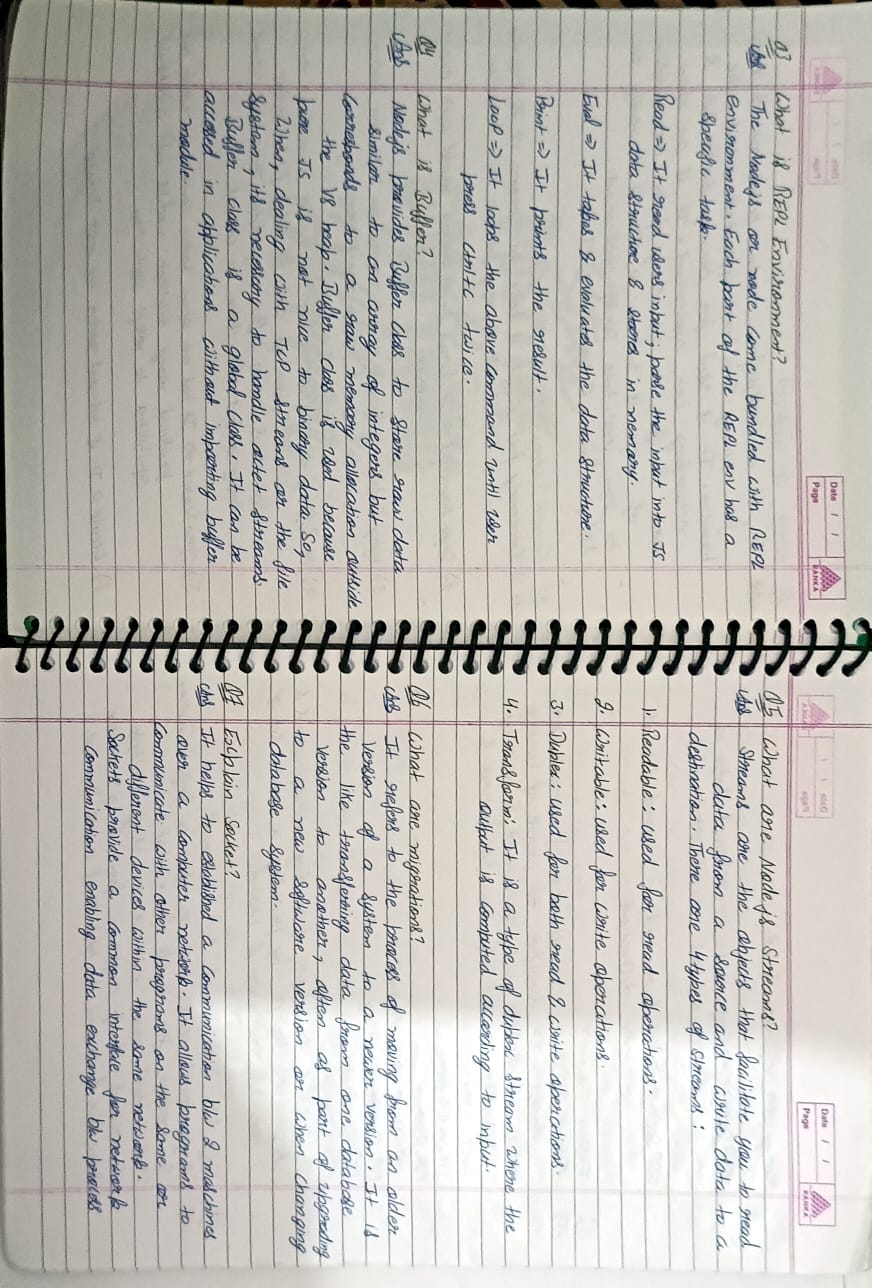 Date / /
Page
RANKA
Q3 What is REPL Environment?
Ans The Nodejs or node come bundled with REPL
environment. Each part of the REPL env has a
specific task.
Read => It read users input; parse the input into JS
data structure & stores in memory.
Eval => It takes & evaluates the data structure.
Print => It prints the result.
Loop => It loops the above command until user
press ctrl+c twice.
Q4 What is Buffer?
Ans Nodejs provides Buffer class to store raw data
similar to an array of integers but
corresponds to a raw memory allocation outside
the V8 heap. Buffer class is used because
pure JS is not nice to binary data. So,
When, dealing with TCP streams or the file
system, it's necessary to handle octet streams.
Buffer class is a global class. It can be
accessed in applications without importing buffer
module.
Date / /
Page
RANKA
Q5 What are Node js Streams?
Ans Streams are the objects that facilitate you to read
data from a source and write data to a
destination. There are 4 types of streams:
1. Readable: used for read operations.
2. Writable: used for write operations.
3. Duplex: used for both read & write operations.
4. Transform: It is a type of duplex stream where the
output is computed according to input.
Q6 What are migrations?
Ans It refers to the process of moving from an older
version of a system to a newer version. It is
the like transferring data from one database
version to another, often as part of upgrading
to a new software version or when changing
database system.
Q7 Explain Socket?
Ans It helps to established a communication b/w 2 maschines
over a computer network. It allows programs to
communicate with other programs on the same or
different devices within the same network.
Sockets provide a common interface for network
communication enabling data exchange b/w process